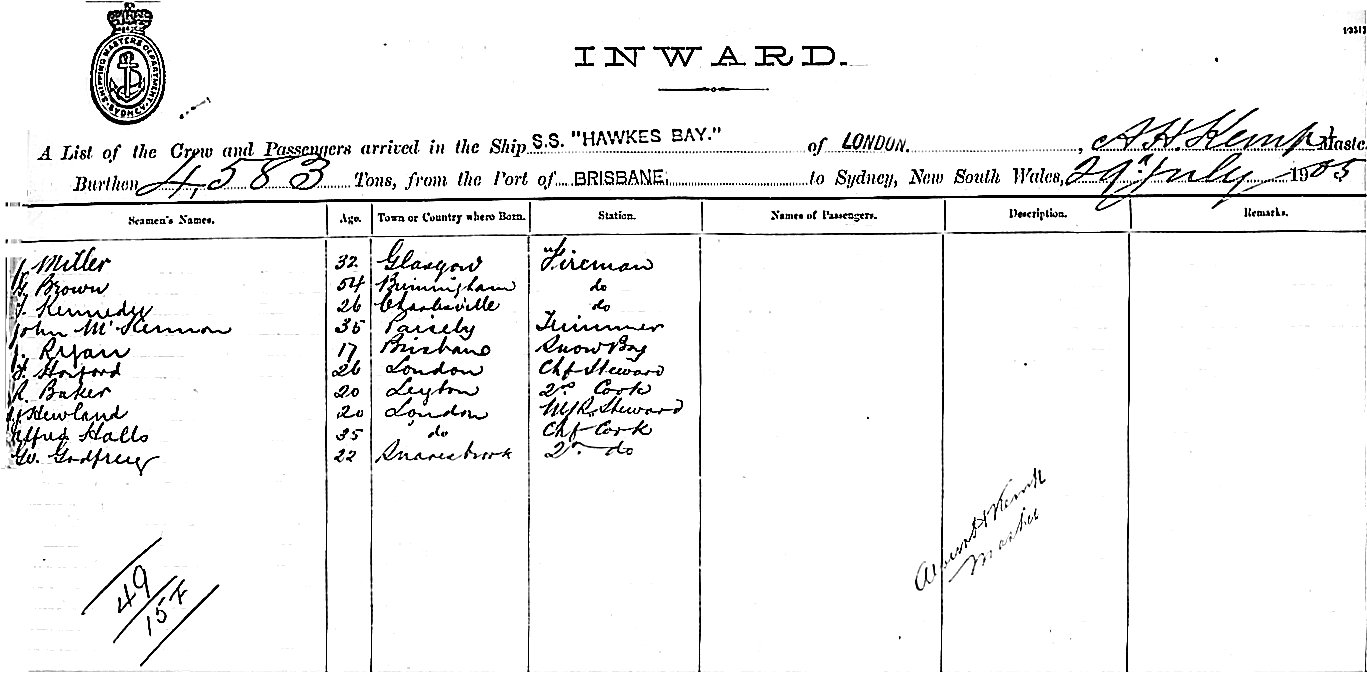 SHIPPING MASTERS DEPARTMENT SYDNEY
INWARD.
A List of the Crew and Passengers arrived in the Ship S.S. "HAWKES BAY." of LONDON. , A H Kemp Maste
Burthen 4,583 Tons, from the Port of BRISBANE. to Sydney, New South Wales, 29th July 1905
Seamen's Names. Age. Town or Country where Born. Station. Names of Passengers. Description. Remarks.
J Miller 32 Glasgow Fireman
G Brown 54 Birmingham do
Kennedy 26 Charlesville do
John McKennon 35 Paisely Trimmer
J. Ryan 17 Brisbane Snow Boy
26 London Chf Steward
R. Baker 20 Leyton 2nd Cook
Newland 20 London Steward
Alfred Halls 35 do Chf Cook
G. Godfrey 22 Snaresbrook 2nd do
Albert H Kemp
Master
49
15 F